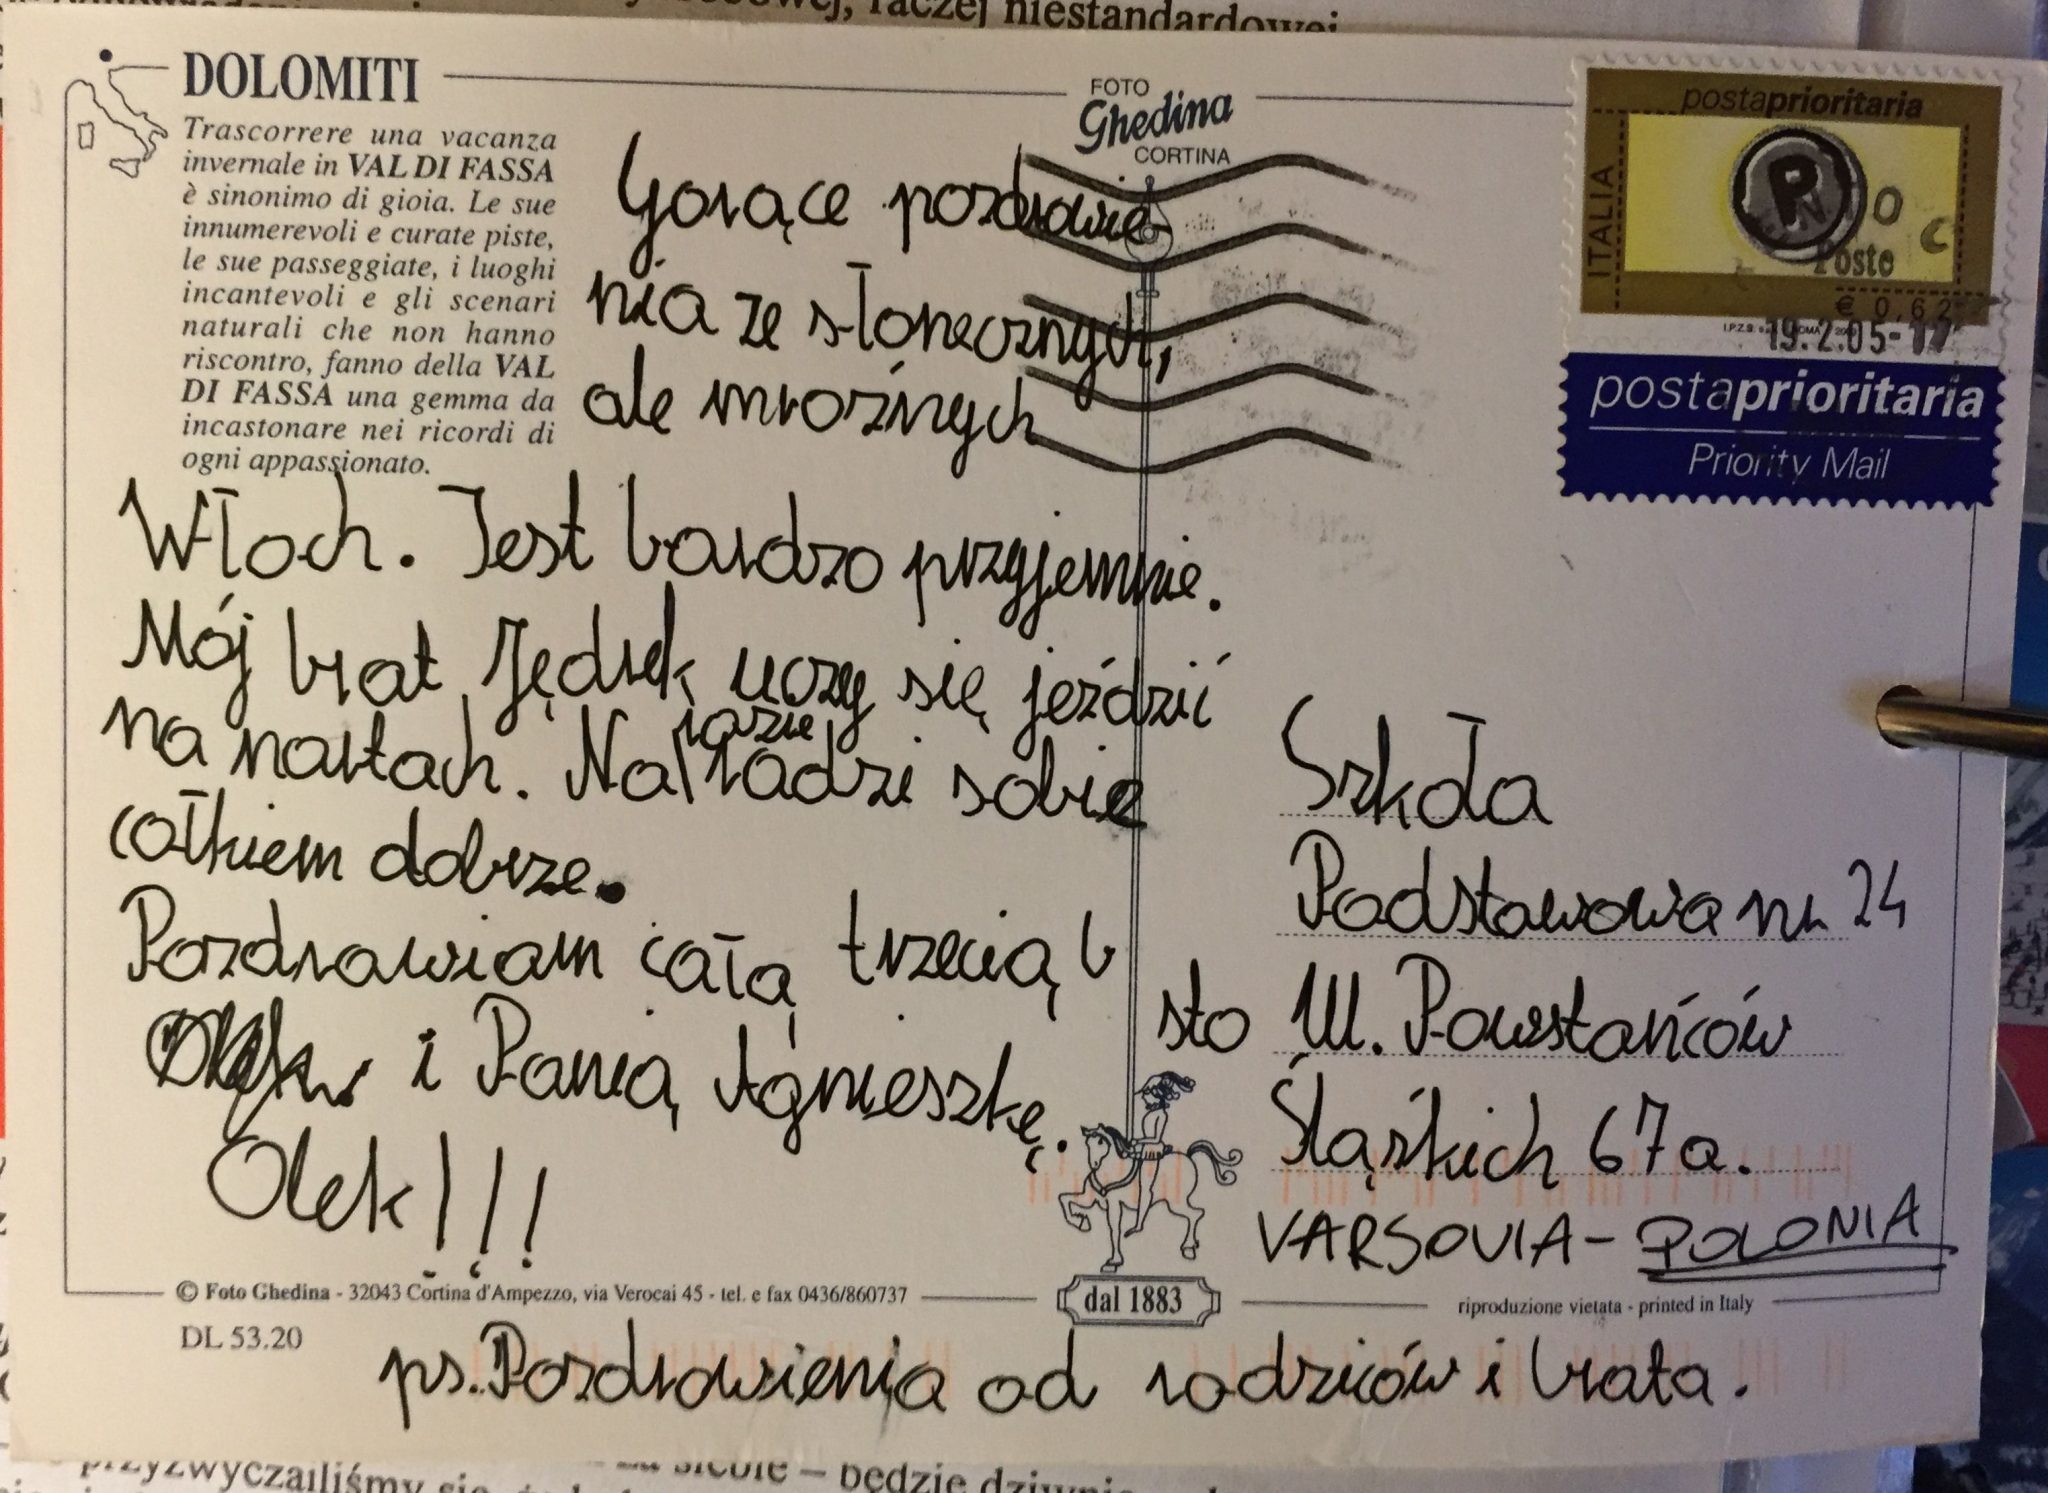 raczej niestandardowej
DOLOMITI
Trascorrere una vacanza
invernale in VAL DI FASSA
è sinonimo di gioia. Le sue
innumerevoli e curate piste,
le sue passeggiate, i luoghi
incantevoli e gli scenari
naturali che non hanno
riscontro, fanno della VAL
DI FASSA una gemma da
incastonare nei ricordi di
ogni appassionato.
FOTO
Ghedina
CORTINA
postaprioritaria
ITALIA
P
Poste
€ 0,62
19.2.05-17
postaprioritaria
Priority Mail
Gorące pozdrowie-
nia ze słonecznych,
ale mroźnych
Włoch. Jest bardzo przyjemnie.
Mój brat Jędrek uczy się jeździć
na nartach. Na razie radzi sobie
całkiem dobrze.
Pozdrawiam całą trzecią b
i Panią Agnieszkę.
Olek!!!
Szkoła
Podstawowa nr 24
sto Ul. Powstańców
Śląskich 67a.
VARSOVIA - POLONIA
© Foto Ghedina - 32043 Cortina d'Ampezzo, via Verocai 45 - tel. e fax 0436/860737
dal 1883
riproduzione vietata - printed in Italy
DL 53.20
ps. Pozdrowienia od rodziców i brata.
przyzwyczailiśmy się
będzie